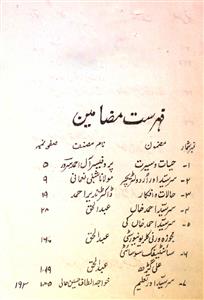 فہرست مضامین
نمبرشمار مضمون نام مصنف صفحہ نمبر
۱- حیات و سیرت پروفیسر آل احمد سرور ۵
۲- سرسید اور اردو لٹریچر مولانا شبلی نعمانی ۹
۳- حالات و افکار ڈاکٹر نذیر احمد ۱۹
۴- سرسید احمد خاں عبدالحق ۲۸
۵- سرسید احمد خاں کی
مجوزہ ورنیکلر یونیورسٹی عبدالحق
۶- سائنٹیفک سوسائٹی
علی گڑھ عبدالحق
۷- سرسید اور تعلیم خواجہ الطاف حسین حالی ۱۸۵